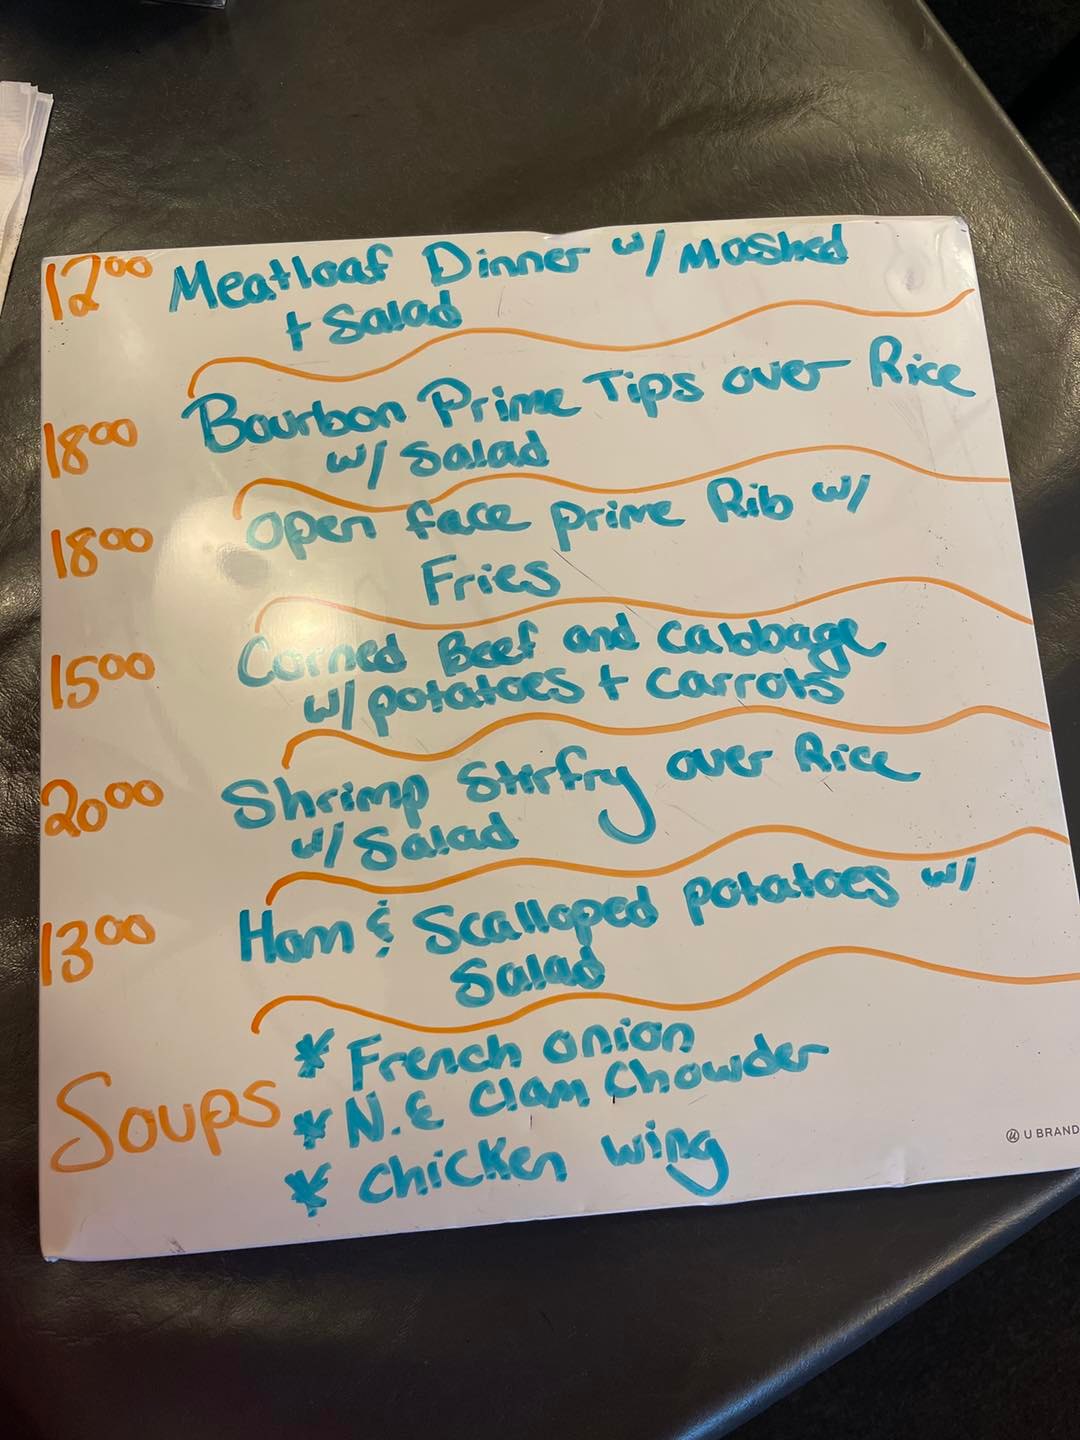 12⁰⁰ Meatloaf Dinner w/ Mashed
+ Salad
18⁰⁰ Bourbon Prime Tips over Rice
w/ Salad
18⁰⁰ Open face prime Rib w/
Fries
15⁰⁰ Corned Beef and cabbage
w/ potatoes + carrots
20⁰⁰ Shrimp Stirfry over Rice
w/ Salad
13⁰⁰ Ham & Scalloped potatoes w/
Salad
Soups * French onion
* N.E Clam Chowder
* Chicken wing
U BRAND